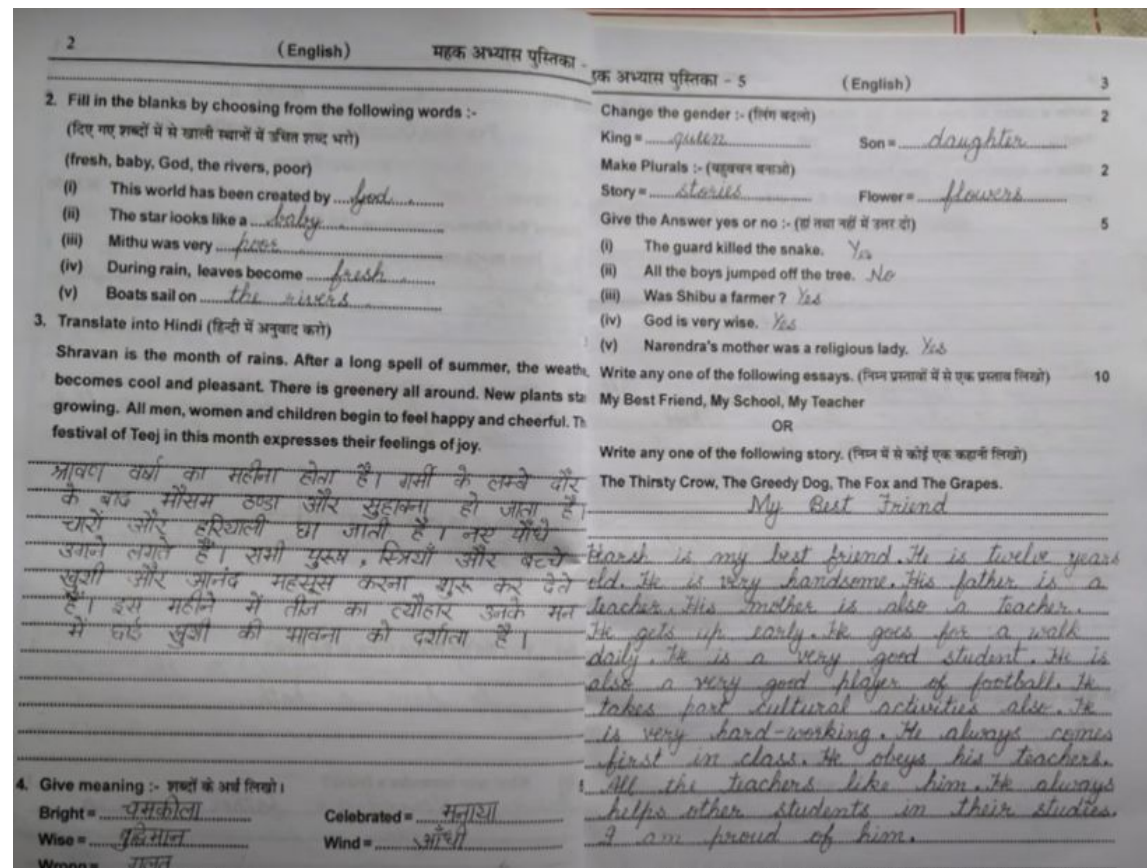 2 (English) महक अभ्यास पुस्तिका -
2. Fill in the blanks by choosing from the following words :-
(दिए गए शब्दों में से खाली स्थानों में उचित शब्द भरो)
(fresh, baby, God, the rivers, poor)
(i) This world has been created by ....God.........
(ii) The star looks like a ....baby.........
(iii) Mithu was very ....poor.........
(iv) During rain, leaves become ....fresh.........
(v) Boats sail on ....the rivers.........
3. Translate into Hindi (हिन्दी में अनुवाद करो)
Shravan is the month of rains. After a long spell of summer, the weathe
becomes cool and pleasant. There is greenery all around. New plants sta
growing. All men, women and children begin to feel happy and cheerful. Th
festival of Teej in this month expresses their feelings of joy.
श्रावण वर्षा का महीना होता है। गर्मी के लम्बे दौर
के बाद मौसम ठण्डा और सुहावना हो जाता है।
चारों और हरियाली छा जाती है। नए पौधे
उगने लगते हैं। सभी पुरुष, स्त्रियाँ और बच्चे
खुशी और आनंद महसूस करना शुरू कर देते
हैं। इस महीने में तीज का त्यौहार उनके मन
में छाई खुशी की भावना को दर्शाता है।
4. Give meaning :- शब्दों के अर्थ लिखो।
Bright = चमकीला Celebrated = मनाया
Wise = बुद्धिमान Wind = आँधी
Wrong = गलत
हक अभ्यास पुस्तिका - 5 (English) 3
Change the gender :- (लिंग बदलो) 2
King = queen Son = daughter
Make Plurals :- (बहुवचन बनाओ) 2
Story = stories Flower = flowers
Give the Answer yes or no :- (हां तथा नहीं में उत्तर दो) 5
(i) The guard killed the snake. Yes
(ii) All the boys jumped off the tree. No
(iii) Was Shibu a farmer ? Yes
(iv) God is very wise. Yes
(v) Narendra's mother was a religious lady. Yes
Write any one of the following essays. (निम्न प्रस्तावों में से एक प्रस्ताव लिखो) 10
My Best Friend, My School, My Teacher
OR
Write any one of the following story. (निम्न में से कोई एक कहानी लिखो)
The Thirsty Crow, The Greedy Dog, The Fox and The Grapes.
My Best Friend
Harsh is my best friend. He is twelve years
old. He is very handsome. His father is a
teacher. His mother is also a teacher.
He gets up early. He goes for a walk
daily. He is a very good student. He is
also a very good player of football. He
takes part cultural activities also. He
is very hard-working. He always comes
first in class. He obeys his teachers.
All the teachers like him. He always
helps other students in their studies.
I am proud of him.